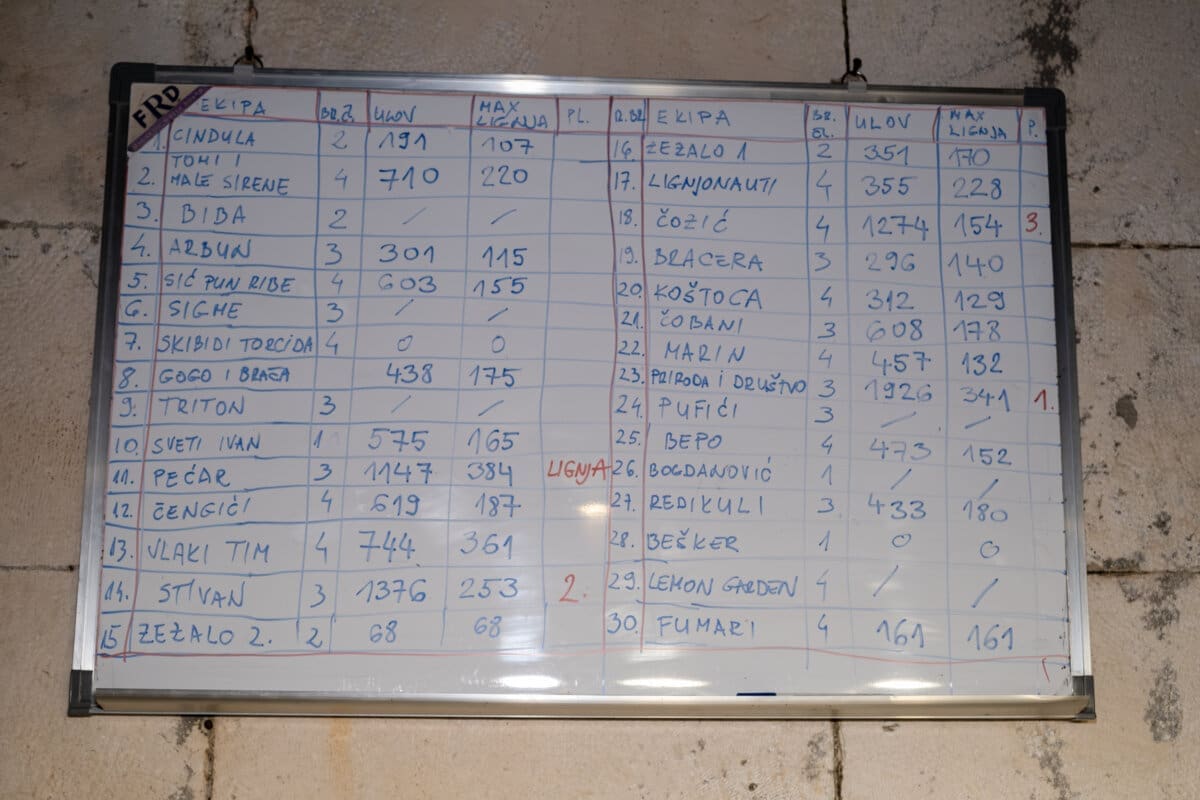 FRD
EKIPA BR.Č. ULOV MAX LIGNJA PL.
1. CINDULA 2 191 107
2. TOMI I MALE SIRENE 4 710 220
3. BIBA 2 / /
4. ARBUN 3 301 115
5. SIĆ PUN RIBE 4 603 155
6. SIGME 3 / /
7. SKIBIDI TORCIDA 4 0 0
8. GOGO I BRAĆA 438 175
9. TRITON 3 / /
10. SVETI IVAN 1 575 165
11. PEĆAR 3 1147 384 LIGNJA
12. ČENGIĆI 4 619 187
13. VLAKI TIM 4 744 361
14. STIVAN 3 1376 253 2.
15 ZEZALO 2. 2 68 68
R.BR EKIPA BR. ČL. ULOV MAX LIGNJA P.
16 ZEZALO 1 2 351 170
17. LIGNJONAUTI 4 355 228
18. ČOZIĆ 4 1274 154 3.
19. BRACERA 3 296 140
20. KOŠTOCA 4 312 129
21. ČOBANI 3 608 178
22. MARIN 4 457 132
23. PRIRODA I DRUŠTVO 3 1926 341 1.
24. PUFIĆI 3 / /
25. BEPO 4 473 152
26. BOGDANOVIĆ 1 / /
27. REDIKULI 3 433 180
28. BEŠKER 1 0 0
29. LEMON GARDEN 4 / /
30. FUMARI 4 161 161